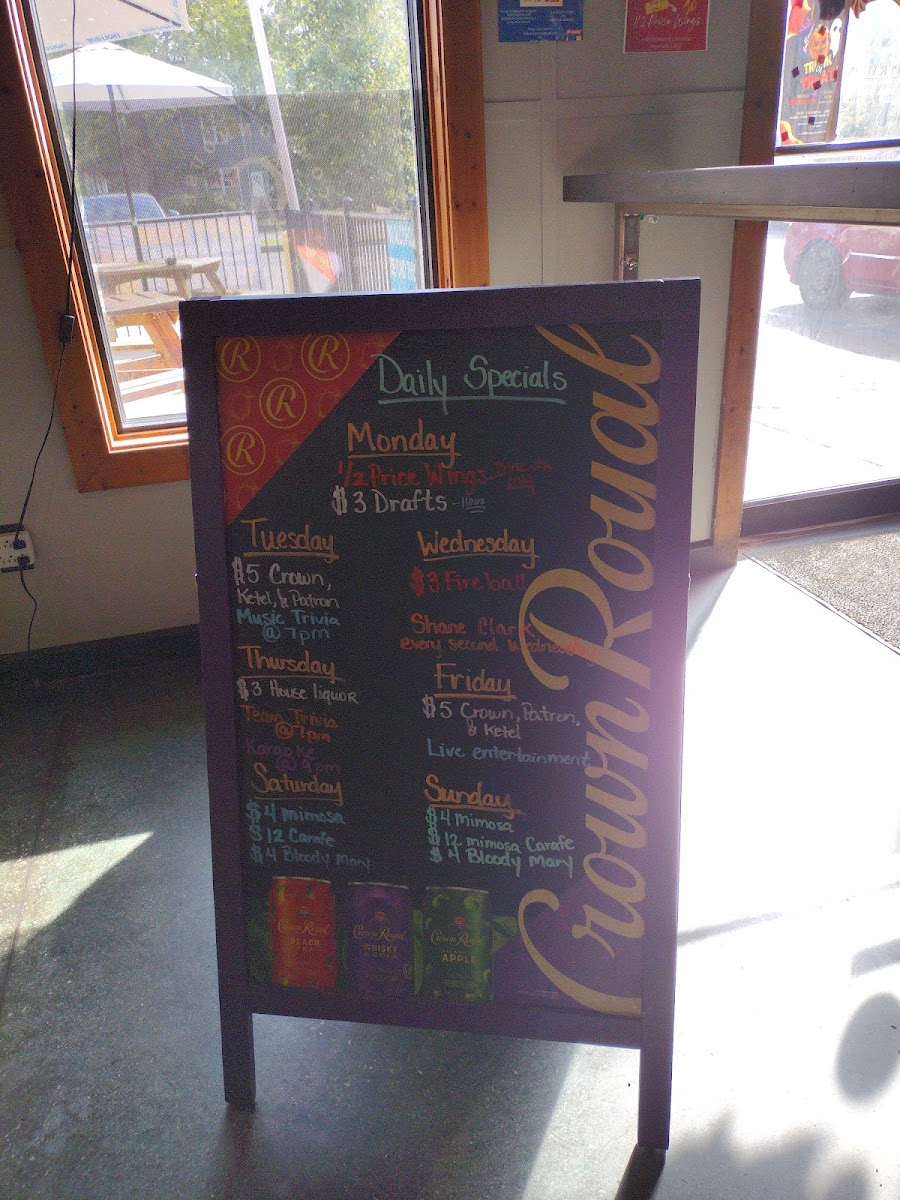 1/2 Price Wings
TRICK
TREAT
R
R
R
R
Daily Specials
Monday
1/2 Price Wings
$3 Drafts - 16oz
Tuesday
$5 Crown,
Ketel, & Patron
Music Trivia
@ 7pm
Wednesday
$3 Fireball
Shane Clark
every second Wednesday
Thursday
$3 House liquor
Team Trivia
@ 7pm
Karaoke
@ 9pm
Friday
$5 Crown, Patron,
& Ketel
Live entertainment
Saturday
$4 mimosa
$12 Carafe
$4 Bloody Mary
Sunday
$4 mimosa
$12 mimosa Carafe
$4 Bloody Mary
Crown Royal
Crown Royal
PEACH
TEA
Crown Royal
WHISKY
& COLA
Crown Royal
APPLE